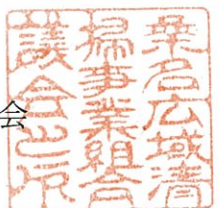 会
桑名広域清
掃事業組合
議会之印